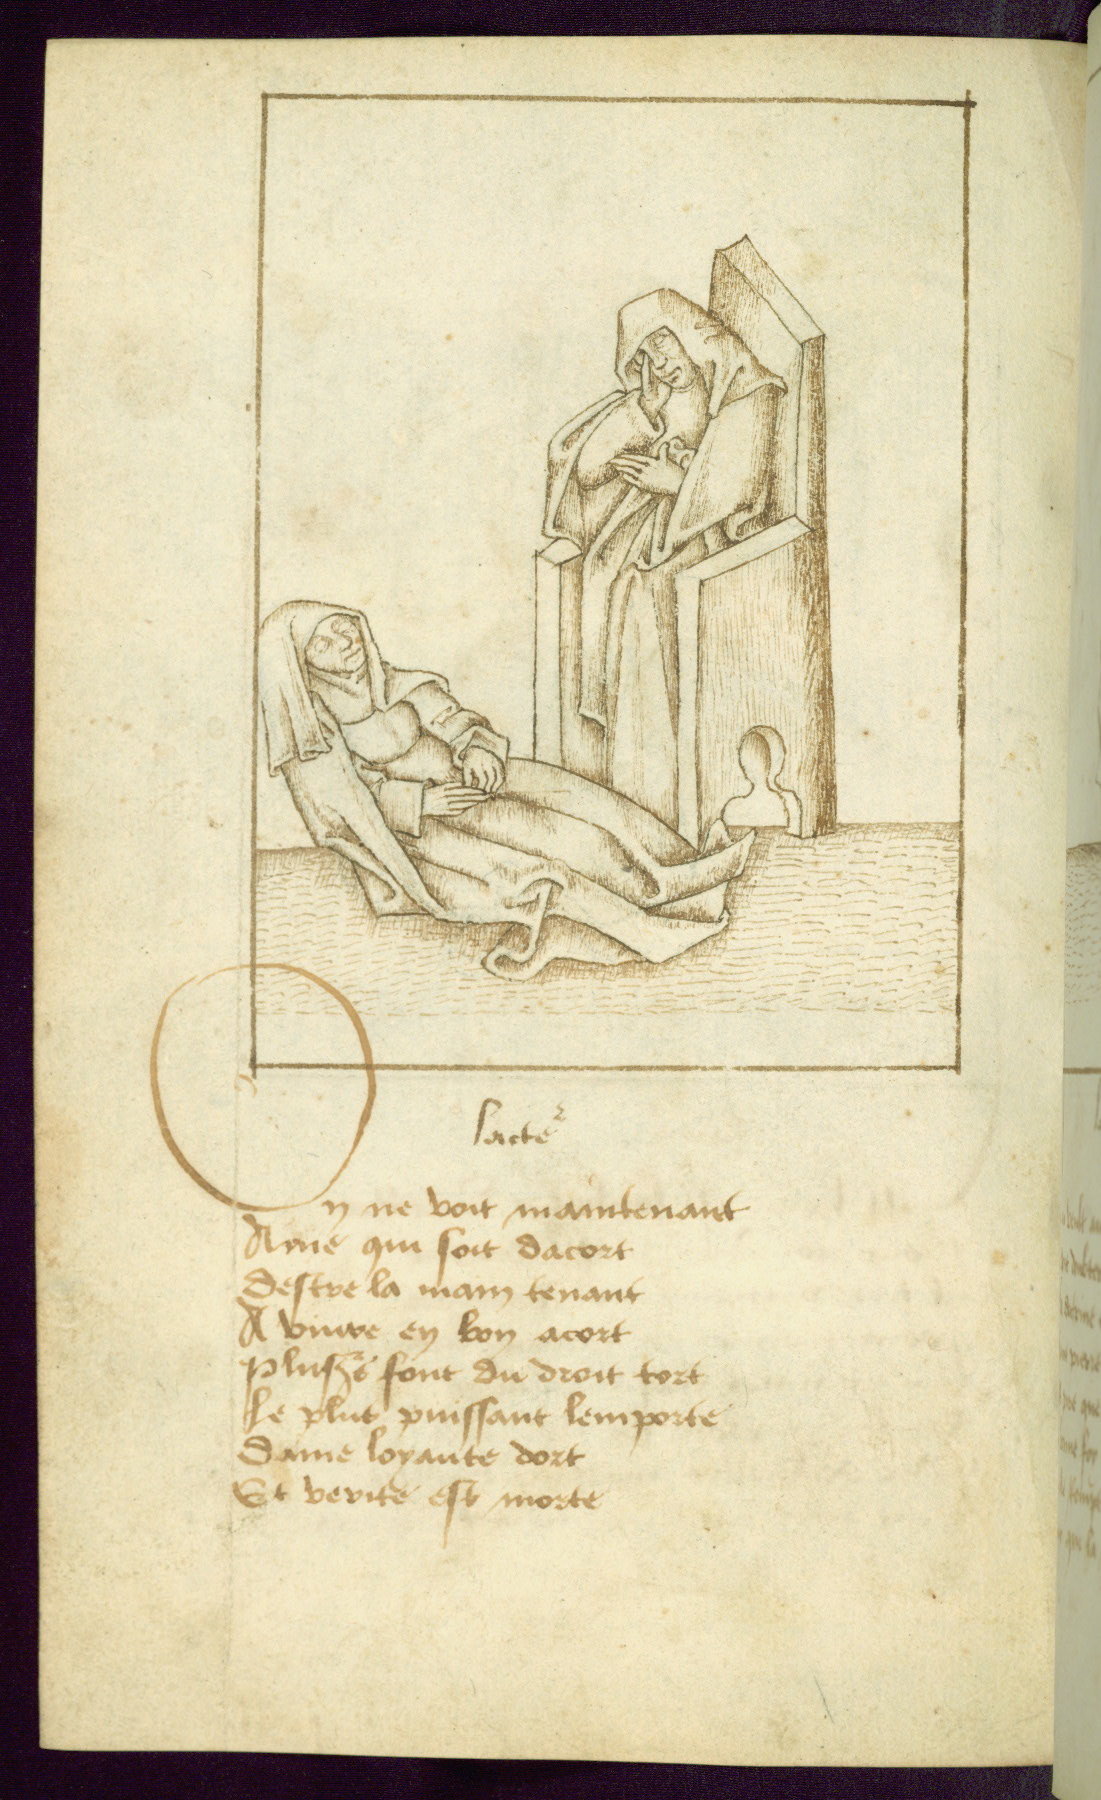 lacteur
On ne voit maintenant
Ame qui soit dacort
Destre la main tenant
A viure en bon acort
Plusrs font du droit tort
Le plus puissant lemporte
Dame loyaute dort
Et verite est morte